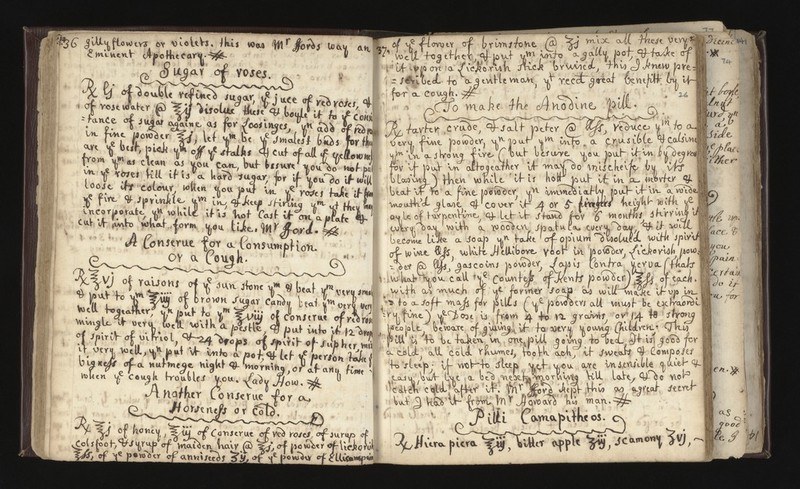 36 gillyflowers or violets. this was Mr Jords way an
Eminent Apothecary.
Sugar of roses.
℞ ℔j of double refined sugar, ye juce of red roses, &
of rosewater @ ℥ij disolue these & boyle it to ye consis
=tance of sugar againe as for Loosinges, yn add of red ros
in fine powder ℥j, let ym be ye smalest buds for th
are ye best, pick ym off ye stalks & cut of all ye yellown
from ym as clean as you can, but besure you do not pu
in ye roses till it is a hard sugar, for if you do it will
loose its colour, when you put in ye roses take it from
ye fire & sprinkle ym in, & keep stirling ym yt they m
incorporate, yn while it is hot Cast it on a plate &
cut it into what form you like. Mr Jord.
A Conserue for a Consumption.
or a Cough.
℞ ℥vj of raisons of ye sun stone ym & beat ym very small
& put to ym ℥iij of brown sugar Candy beat ym very very
well togeather, yn put to ym ℥viij of conserue of redroses
mingle it very well with a pestle, & put into it 12 drops
of spirit of vitriol, & 24 drops of spirit of sulpher, mix
it very well, yn put it into a pot, & let ye person take ye
bigness of a nutmege night & morning, or at any time
when ye cough troubles you. Lady How.
Another Conserue for a
Horseness or Cold.
℞ ℥j of honey ℥iij of Conserue of red roses, of surup of
Colsfoot, & syrup of maiden hair @ ℥j, of powder of lickorish
℥ss, of ye powder of anniseeds ʒij, of ye powder of Ellicampain
37 of ye flower of brimstone @ ʒj mix all these very
well together, & put ym into a gally pot, & take of
it upon a Lickorish stick bruised, this I knew pre=
=scribed to a gentleman, yt recd great benefitt by it
for a cough.
To make the Anodine Pill.
℞ tarter crude, & salt peter @ ℔ss, reduce ym to a
very fine powder, yn put ym into a crusible & calsine
ym in a strong fire (but besure you put it in by degrees
for it put in altogeather it may do mischeife by its
blowing) then while it is hott put it in a morter &
beat it to a fine powder, yn immediatly put it in a wide
mouth'd glass, & cover it 4 or 5 fingers height with ye
oyle of turpentine, & let it stand for 6 months stirring it
every day with a wooden spatula every day, & it will
become like a soap yn take of opium disoluld with spirit
of wine ℔ss, white Hellibore root in powder, Lickorish pow
=der @ ℔ss, gascoins powder, Lapis contra yerva (thats
what you call ye Countess of Kents powder) ℥ss of each,
with as much of ye former soap as will make it up in
to a soft mass for pills (ye powders all must be extraordi
=ry fine) ye Dose is from 4 to 12 grains or 14 to strong
people, beware of giuing it to very young Children. This
pill is to be taken in one pill going to bed, It is good for
a cold, all cold rhumes, tooth ach, it sweats & Composes
to sleep; if not to sleep yet you are insensible quiet &
easy, but lye a bed next morning till late, & do not
catch cold after it. Mr Jord kept this as a great secret
but I had it from Mr Howard his man.
Pilli Camapitheos.
℞ Hiera piera ℥iij, bitter apple ʒiij, scamony ʒvj,